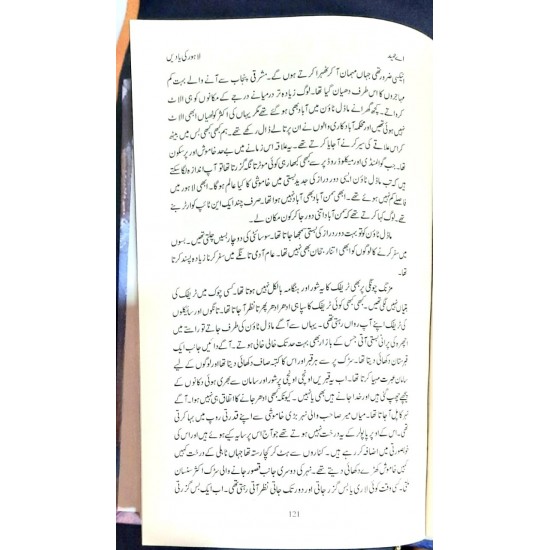 اے حمید
لاہور کی یادیں
انیکسی ضرور تھی جہاں مہمان آ کر ٹھہرا کرتے ہوں گے۔ مشرقی پنجاب سے آنے والے بہت کم
مہاجروں کا اس طرف دھیان گیا تھا۔ لوگ زیادہ تر درمیانے درجے کے مکانوں کو ہی الاٹ
کرواتے۔ کچھ گھرانے ماڈل ٹاؤن میں آباد بھی ہو گئے تھے مگر یہاں کی اکثر کوٹھیاں ابھی الاٹ
نہیں ہوئی تھیں اور محکمہ آبادکاری والوں نے ان پر تالے ڈال رکھے تھے۔ ہم کبھی کبھی بس میں بیٹھ
کر اس علاقے کی سیر کرنے آ جایا کرتے تھے۔ یہ علاقہ اس زمانے میں بے حد خاموش اور پرسکون
تھا۔ جب گوالمنڈی اور میکلوڈ روڈ پر سے کبھی کبھار ہی کوئی موٹر تانگہ گزرتا تھا تو آپ اندازہ لگا سکتے
ہیں کہ تب ماڈل ٹاؤن ایسی دور دراز کی جدید بستی میں خاموشی کا کیا عالم ہو گا۔ ابھی لاہور میں
فاصلے کم نہیں ہوئے تھے۔ ابھی سمن آباد بھی آباد نہیں ہوا تھا۔ صرف چند ایک این ٹائپ کوارٹر بنے
تھے۔ لوگ کہا کرتے تھے کہ سمن آباد اتنی دور جا کر کون مکان لے۔
ماڈل ٹاؤن کو تو بہت دور دراز کی بستی سمجھا جاتا تھا۔ سوسائٹی کی دو چار بسیں چلتی تھیں۔ بسوں
میں سفر کرنے کا لوگوں کو ابھی اتنا رجحان بھی نہیں تھا۔ عام آدمی تانگے میں سفر کرنا زیادہ پسند کرتا
تھا۔
مزنگ چونگی پر بھی ٹریفک کا یہ شور اور ہنگامہ بالکل نہیں ہوتا تھا۔ کسی چوک میں ٹریفک کی
بتیاں نہیں لگی تھیں۔ کبھی کبھی کوئی ٹریفک کا سپاہی ادھر ادھر پھرتا نظر آ جاتا تھا۔ تانگوں اور سائیکلوں
کی ٹریفک اپنے آپ رواں رہتی تھی۔ یہاں سے آگے ماڈل ٹاؤن کی طرف جاتے تو راستے میں
اچھرہ کی پرانی بستی آتی جس کے بازار ابھی بہت حد تک خالی خالی ہوتے تھے۔ آگے دائیں جانب ایک
قبرستان دکھائی دیتا تھا۔ سڑک پر سے ہر قبر اور اس کا کتبہ صاف دکھائی دیتا تھا اور لوگوں کے لیے
سامان عبرت مہیا کرتا تھا۔ اب یہ قبریں اونچی اونچی پرشور اور سامان سے بھری ہوئی دکانوں کے
پیچھے چھپ گئی ہیں اور خدا جانے ہیں بھی یا نہیں۔ کیونکہ کبھی ادھر جانے کا اتفاق ہی نہیں ہوا۔ آگے
نہر کا پل آ جاتا تھا۔ میاں میر صاحب والی نہر بڑی خاموشی سے اپنے قدرتی روپ میں بہا کرتی
تھی۔ اس کے اوپر پاپولر کے یہ درخت نہیں ہوتے تھے جو آج اس پر سایہ کیے ہوئے ہیں اور اس کی
خوبصورتی میں اضافہ کر رہے ہیں۔ کناروں سے ہٹ کر کچا رستہ تھا جہاں ٹاہلی کے درخت کہیں
کہیں خاموش کھڑے دکھائی دیتے تھے۔ نہر کی دوسری جانب قصور جانے والی سڑک اکثر سنسان
ہوتی۔ کسی وقت کوئی لاری یا بس گزر جاتی اور دور تک جاتی نظر آتی رہتی تھی۔ اب ایک بس گزرتی
121